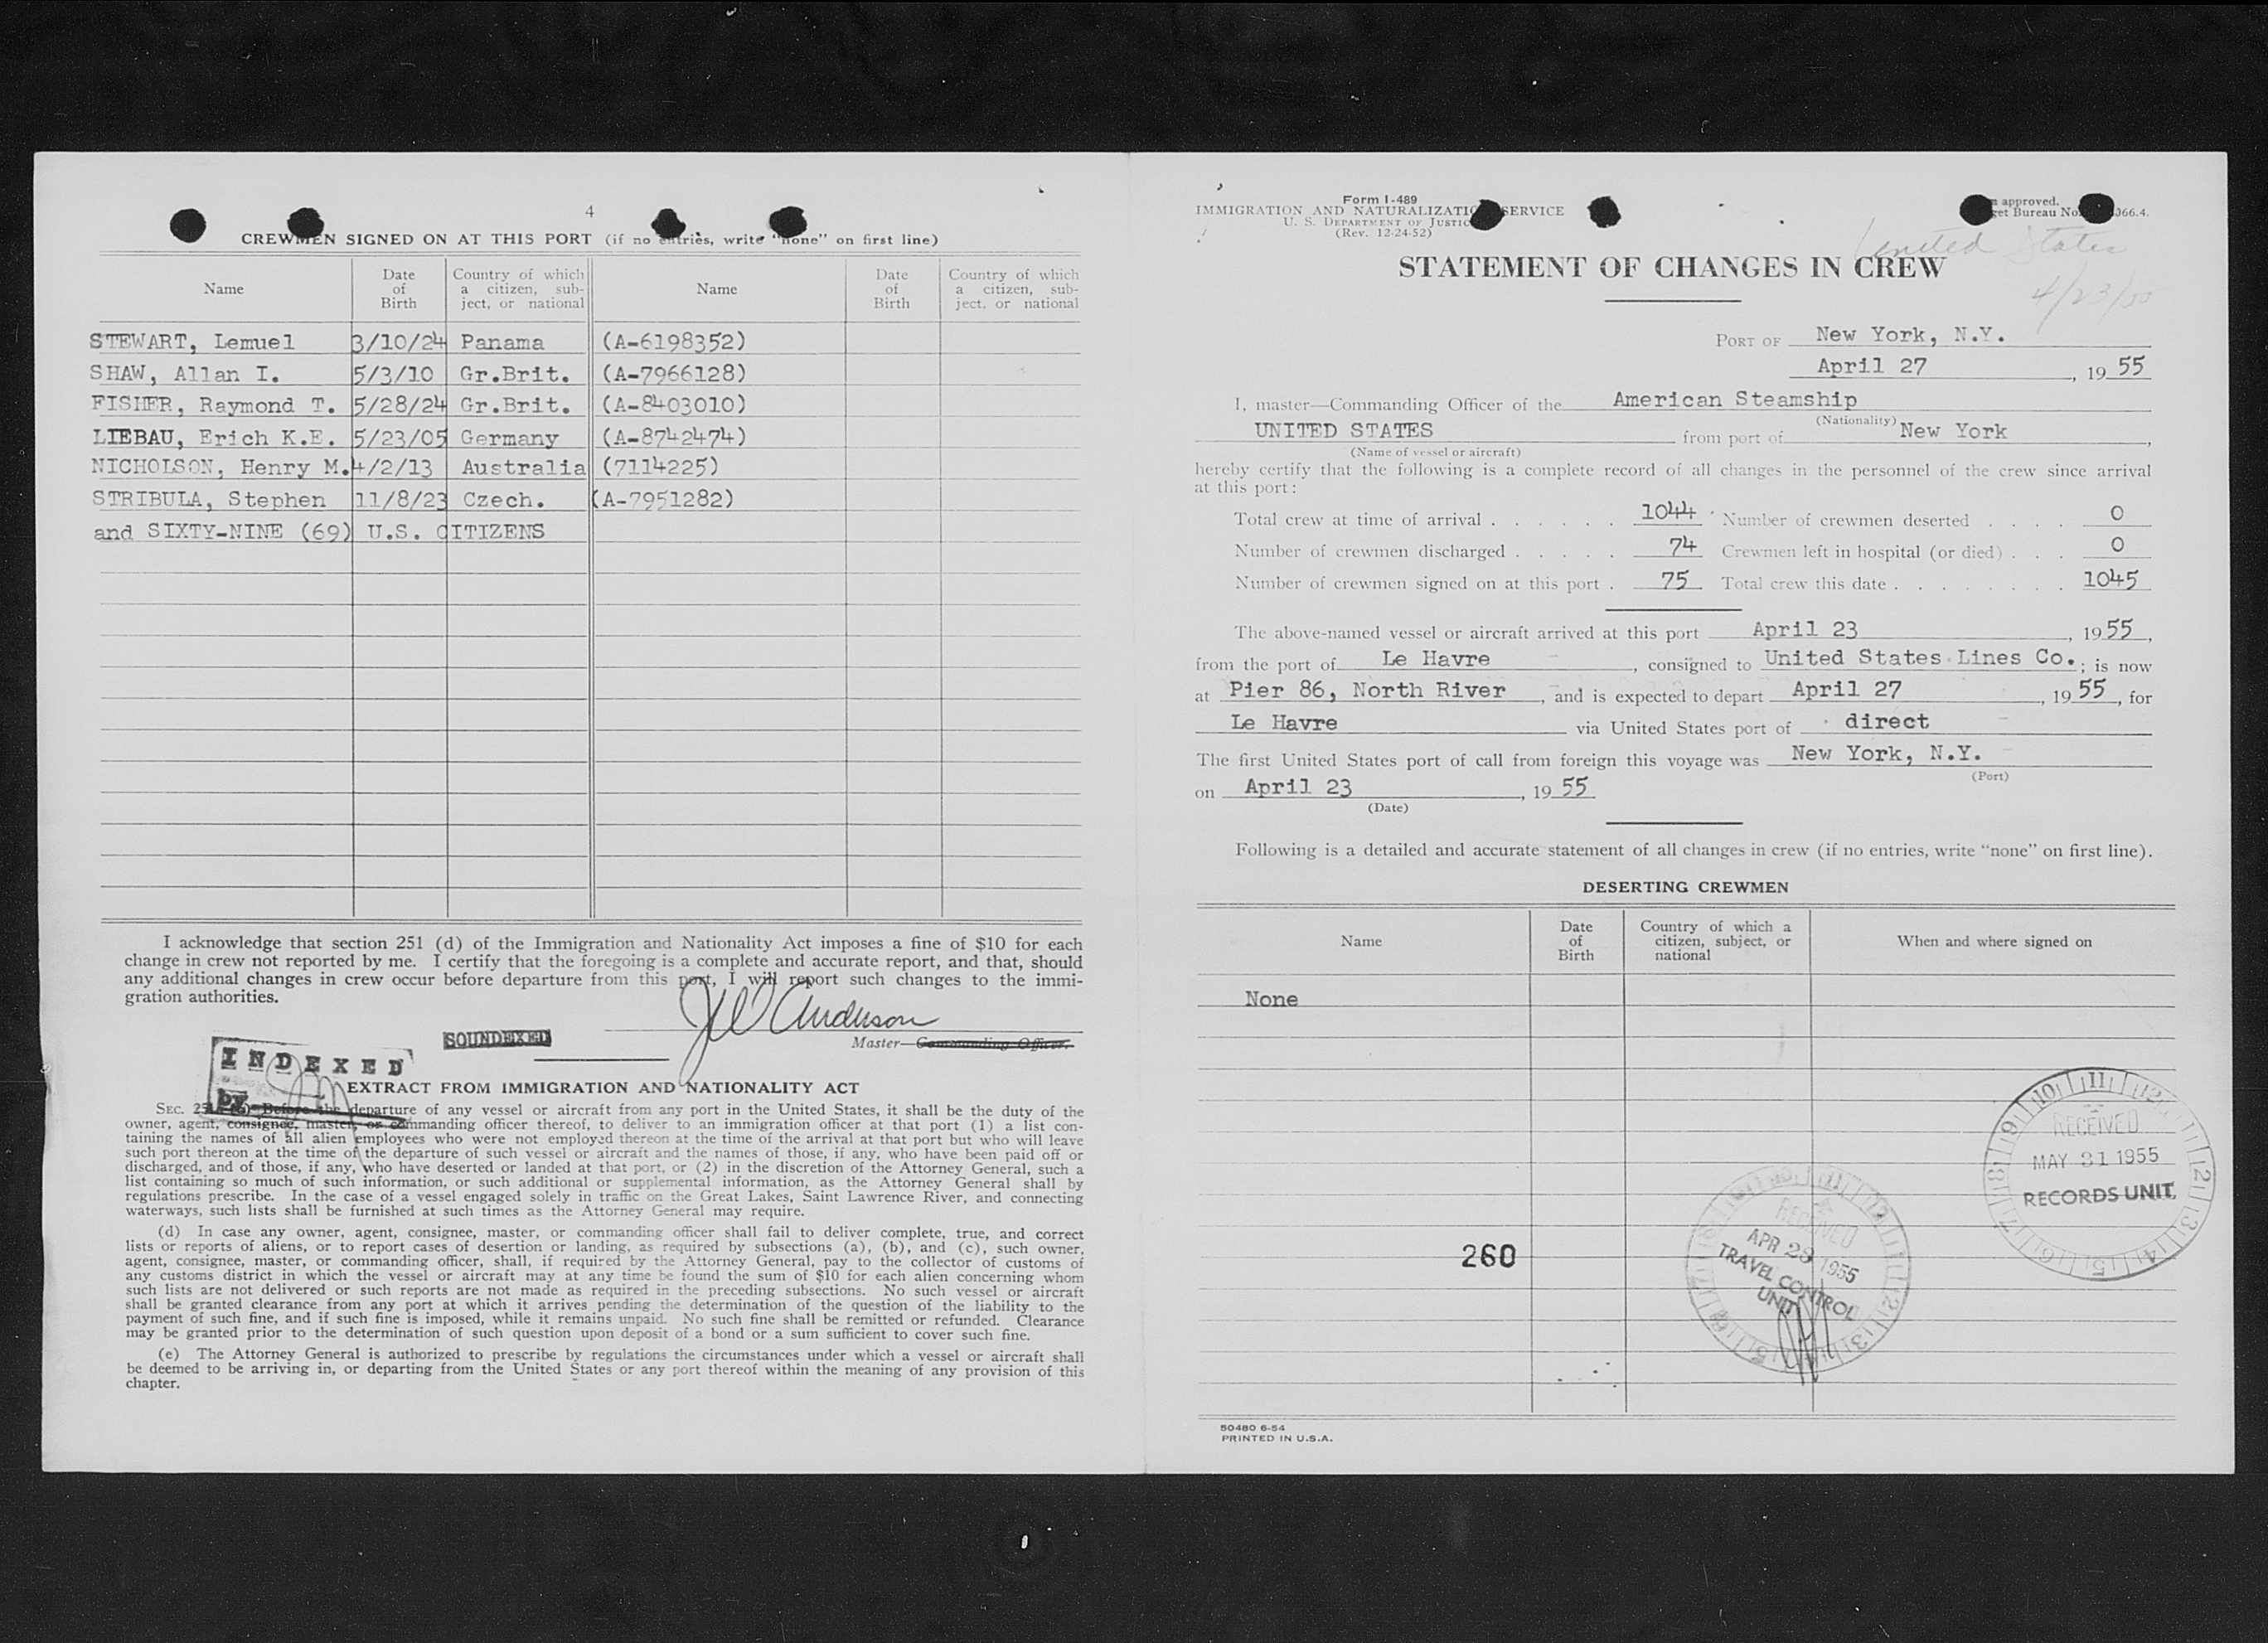 4
CREWMEN SIGNED ON AT THIS PORT (if no entries, write "none" on first line)
Name Date of Birth Country of which a citizen, subject, or national Name Date of Birth Country of which a citizen, subject, or national
STEWART, Lemuel 3/10/24 Panama (A-6198352)
SHAW, Allan I. 5/3/10 Gr.Brit. (A-7966128)
FISHER, Raymond T. 5/28/24 Gr.Brit. (A-8403010)
LIEBAU, Erich K.E. 5/23/05 Germany (A-8742474)
NICHOLSON, Henry M. 4/2/13 Australia (7114225)
STRIBULA, Stephen 11/8/23 Czech. (A-7951282)
and SIXTY-NINE (69) U.S. CITIZENS
I acknowledge that section 251 (d) of the Immigration and Nationality Act imposes a fine of $10 for each
change in crew not reported by me. I certify that the foregoing is a complete and accurate report, and that, should
any additional changes in crew occur before departure from this port, I will report such changes to the immi-
gration authorities.
Anderson
SOUNDEXED
Master—Commanding Officer.
INDEXED
by
EXTRACT FROM IMMIGRATION AND NATIONALITY ACT
SEC. Before the departure of any vessel or aircraft from any port in the United States, it shall be the duty of the
owner, agent, consignee, master, or commanding officer thereof, to deliver to an immigration officer at that port (1) a list con-
taining the names of all alien employees who were not employed thereon at the time of the arrival at that port but who will leave
such port thereon at the time of the departure of such vessel or aircraft and the names of those, if any, who have been paid off or
discharged, and of those, if any, who have deserted or landed at that port, or (2) in the discretion of the Attorney General, such a
list containing so much of such information, or such additional or supplemental information, as the Attorney General shall by
regulations prescribe. In the case of a vessel engaged solely in traffic on the Great Lakes, Saint Lawrence River, and connecting
waterways, such lists shall be furnished at such times as the Attorney General may require.
(d) In case any owner, agent, consignee, master, or commanding officer shall fail to deliver complete, true, and correct
lists or reports of aliens, or to report cases of desertion or landing, as required by subsections (a), (b), and (c), such owner,
agent, consignee, master, or commanding officer, shall, if required by the Attorney General, pay to the collector of customs of
any customs district in which the vessel or aircraft may at any time be found the sum of $10 for each alien concerning whom
such lists are not delivered or such reports are not made as required in the preceding subsections. No such vessel or aircraft
shall be granted clearance from any port at which it arrives pending the determination of the question of the liability to the
payment of such fine, and if such fine is imposed, while it remains unpaid. No such fine shall be remitted or refunded. Clearance
may be granted prior to the determination of such question upon deposit of a bond or a sum sufficient to cover such fine.
(e) The Attorney General is authorized to prescribe by regulations the circumstances under which a vessel or aircraft shall
be deemed to be arriving in, or departing from the United States or any port thereof within the meaning of any provision of this
chapter.
Form I-489
IMMIGRATION AND NATURALIZATION SERVICE
U. S. DEPARTMENT OF JUSTICE
(Rev. 12-24-52)
approved.
Bureau No. 066.4.
United States
4/23/55
STATEMENT OF CHANGES IN CREW
PORT OF New York, N.Y.
April 27, 1955
I, master—Commanding Officer of the American Steamship
(Nationality)
UNITED STATES from port of New York,
(Name of vessel or aircraft)
hereby certify that the following is a complete record of all changes in the personnel of the crew since arrival
at this port:
Total crew at time of arrival . . . . . . 1044 Number of crewmen deserted . . . . 0
Number of crewmen discharged . . . . . 74 Crewmen left in hospital (or died) . . . 0
Number of crewmen signed on at this port . 75 Total crew this date . . . . . . . . 1045
The above-named vessel or aircraft arrived at this port April 23, 1955,
from the port of Le Havre, consigned to United States Lines Co.; is now
at Pier 86, North River, and is expected to depart April 27, 1955, for
Le Havre via United States port of direct
The first United States port of call from foreign this voyage was New York, N.Y.
(Port)
on April 23, 1955
(Date)
Following is a detailed and accurate statement of all changes in crew (if no entries, write "none" on first line).
DESERTING CREWMEN
Name Date of Birth Country of which a citizen, subject, or national When and where signed on
None
RECEIVED
MAY 31 1955
RECORDS UNIT
260
RECEIVED
APR 28 1955
TRAVEL CONTROL
UNIT
50480 6-54
PRINTED IN U.S.A.